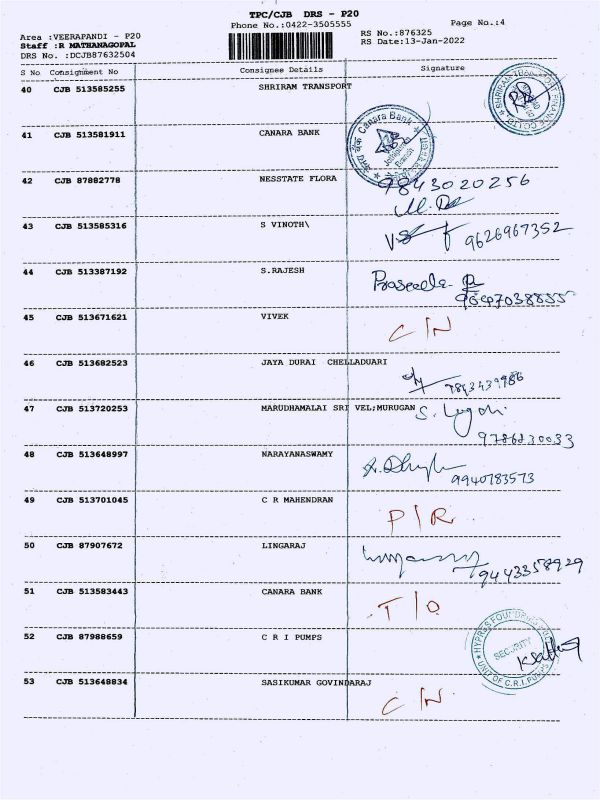 TPC/CJB DRS - P20
Phone No.:0422-3505555
Page No.:4
Area :VEERAPANDI - P20
Staff :R MATHANAGOPAL
DRS No. :DCJB87632504
RS No.:876325
RS Date:13-Jan-2022
S No Consignment No Consignee Details Signature
40 CJB 513585255 SHRIRAM TRANSPORT
41 CJB 513581911 CANARA BANK
Canara Bank
Branch
42 CJB 87882778 NESSTATE FLORA 9843020256
43 CJB 513585316 S VINOTH\ 9626967352
44 CJB 513387192 S.RAJESH
45 CJB 513671621 VIVEK C/N
46 CJB 513682523 JAYA DURAI CHELLADUARI
47 CJB 513720253 MARUDHAMALAI SRI VEL;MURUGAN
48 CJB 513648997 NARAYANASWAMY 9940783573
49 CJB 513701045 C R MAHENDRAN P/R
50 CJB 87907672 LINGARAJ 9443358929
51 CJB 513583443 CANARA BANK T/O
52 CJB 87988659 C R I PUMPS
SECURITY
UNIT OF C.R.I.PUMPS
53 CJB 513648834 SASIKUMAR GOVINDARAJ C/N